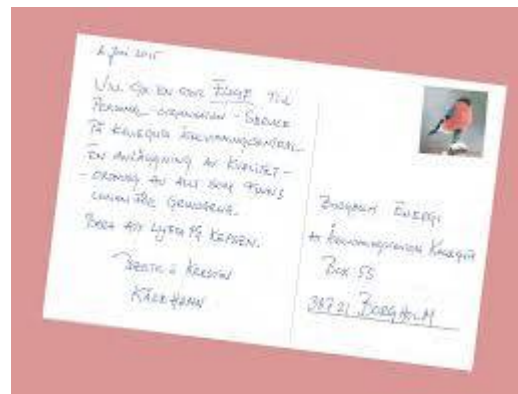 2 Juni 2015
Vill ge en stor ELOGE till
Personal - organisation - Service
på Kalleguta Återvinningscentral.
En anläggning av kvalitet -
- ordning av allt som finns
innanför grindarna.
Bara att lyfta på kepsen.
Bertil & Kerstin
Källahamn
Borgholm Energi
Återvinningscentral Kalleguta
Box 55
38721 Borgholm